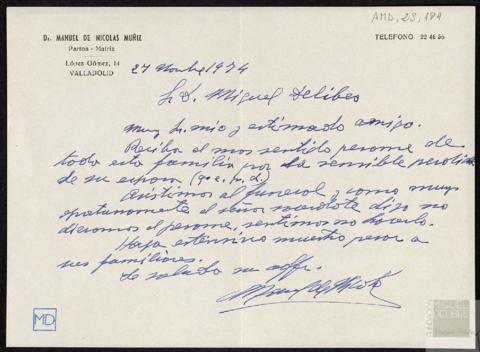 AMD, 23, 184
Dr. MANUEL DE NICOLAS MUÑIZ
Partos - Matriz
López Gómez, 14
VALLADOLID
TELEFONO 22 46 56
27 Novbre 1974
Sr D. Miguel Delibes
Muy Sr. mio y estimado amigo.
Reciba el mas sentido pesame de
toda esta familia por la sensible perdida
de su esposa (q. e. p. d.)
Asistimos al funeral y como muy
oportunamente el señor sacerdote dijo no
dieramos el pesame, sentimos no hacerlo.
Haga extensivo nuestro pesar a
sus familiares.
Le saluda su affr.
MD
FUNDACIÓN
MIGUEL
DELIBES